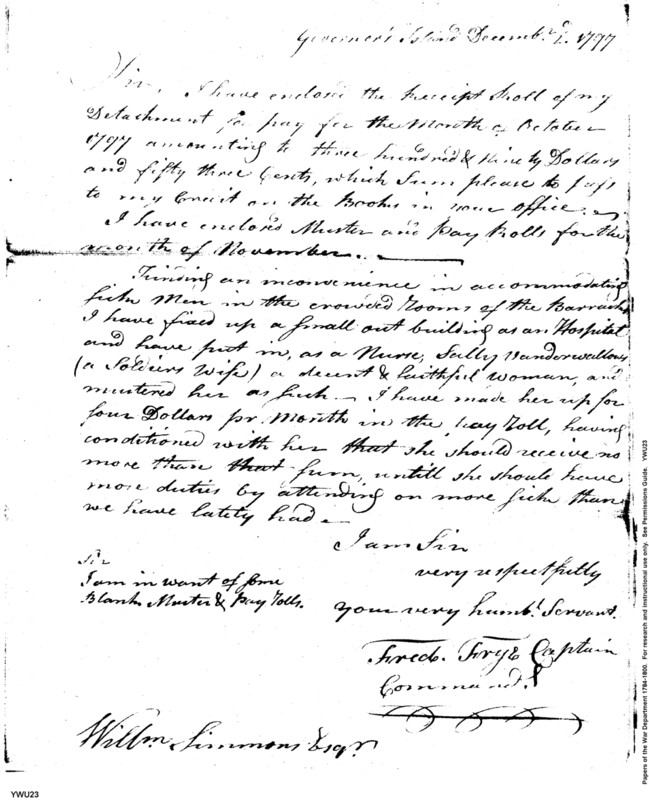 Governer's Island Decembr. 1. 1797
Sir, I have enclosd the Receipt Roll of my
Detachment for pay for the Month of October
1797 amounting to three hundred & Ninety Dollars
and fifty three Cents, which Sum please to pass
to my Credit on the Books in your office.
I have enclosd Muster and Pay Rolls for the
month of November.
Finding an inconvenience in accommodating
sick Men in the crowded Rooms of the Barracks
I have fixed up a small out building as an Hospital
and have put in, as a Nurse, Sally Vanderwallow
(a Soldiers Wife) a decent & faithful woman, and
mustered her as such - I have made her up for
four Dollars pr. Month in the pay roll, having
conditioned with her that she should receive no
more than that sum, untill she should have
more duties by attending on more sick than
we have lately had -
I am Sir
very respectfully
your very humbl. Servant.
Fredk. Frye Captain
Command.
Sir
I am in want of some
Blank Muster & Pay rolls.
Willm. Simmons Esqr.
YWU23
Papers of the War Department 1784-1800. For research and instructional use only. See Permissions Guide. YWU23